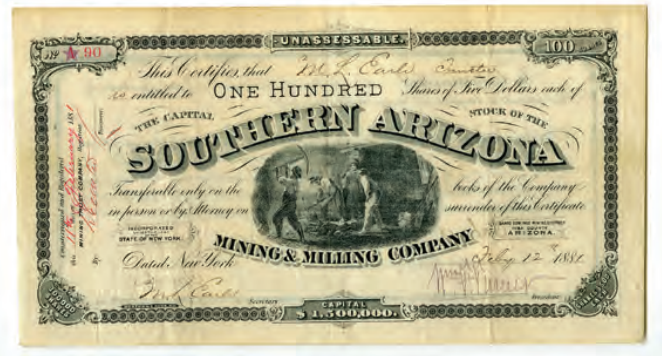 UNASSESSABLE.
Nº A 90
100
This Certifies, that M. L. Earle Trustee
is entitled to ONE HUNDRED Shares of Five Dollars each of
THE CAPITAL STOCK OF THE
SOUTHERN ARIZONA
Transferable only on the books of the Company
in person or by Attorney on surrender of this Certificate
INCORPORATED
STATE OF NEW YORK
PIMA COUNTY
ARIZONA.
MINING & MILLING COMPANY
Dated, New York Feby 12th 1881.
Secretary
President
CAPITAL
$ 1,500,000.
Countersigned and Registered
this February 1881
MINING TRUST COMPANY, Registrar
By